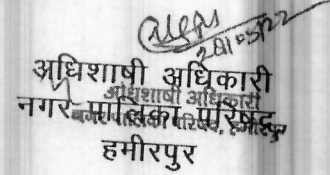 अधिशाषी अधिकारी
अधिशाषी अधिकारी
नगर पालिका परिषद्
हमीरपुर